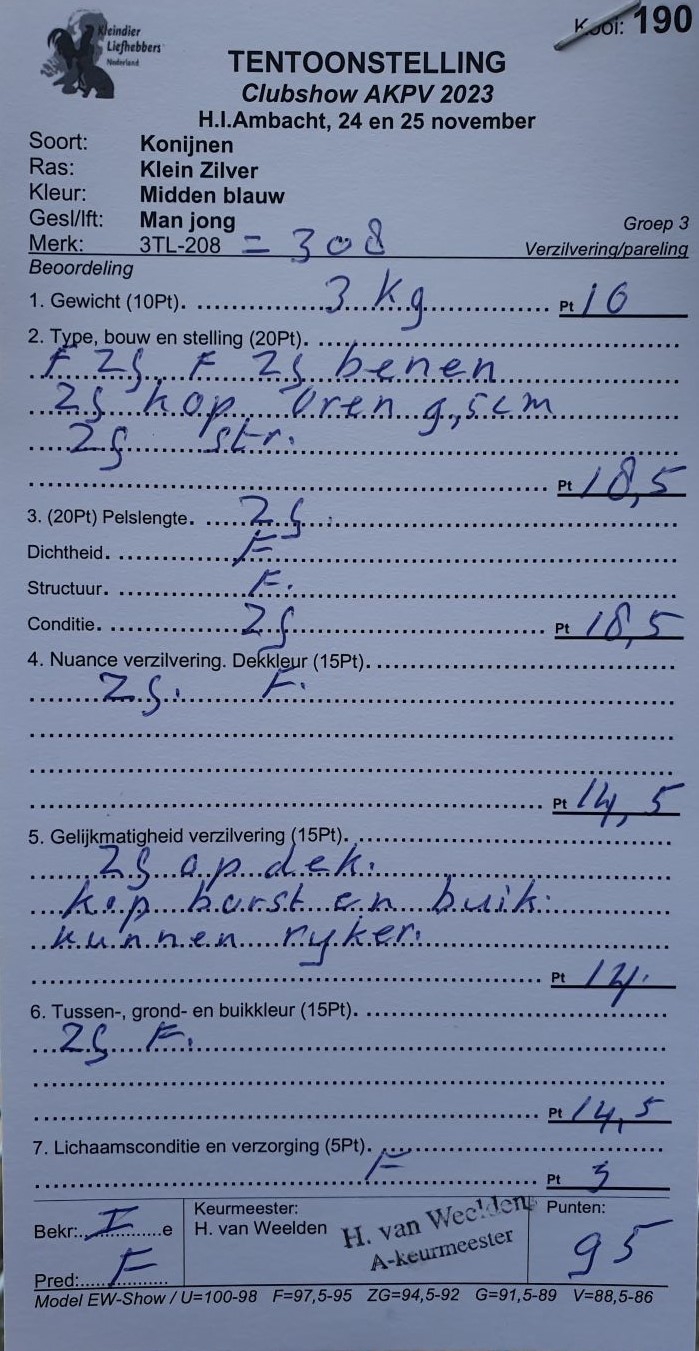 Kleindier
Liefhebbers
Nederland
Kooi: 190
TENTOONSTELLING
Clubshow AKPV 2023
H.I.Ambacht, 24 en 25 november
Soort: Konijnen
Ras: Klein Zilver
Kleur: Midden blauw
Gesl/lft: Man jong
Groep 3
Merk: 3TL-208 = 308
Verzilvering/pareling
Beoordeling
1. Gewicht (10Pt). 3 kg Pt 10
2. Type, bouw en stelling (20Pt).
F ZG. F ZG benen
ZG kop oren 9,5cm
ZG str.
Pt 18,5
3. (20Pt) Pelslengte. ZG.
Dichtheid. F
Structuur. F.
Conditie. ZG Pt 18,5
4. Nuance verzilvering. Dekkleur (15Pt).
ZG. F.
Pt 14,5
5. Gelijkmatigheid verzilvering (15Pt).
ZG op dek.
kop borst en buik
kunnen ryker.
Pt 14.
6. Tussen-, grond- en buikkleur (15Pt).
ZG F.
Pt 14,5
7. Lichaamsconditie en verzorging (5Pt).
F Pt 5
Bekr: I e
Pred: F
Keurmeester:
H. van Weelden
H. van Weelden
A-keurmeester
Punten:
95
Model EW-Show / U=100-98 F=97,5-95 ZG=94,5-92 G=91,5-89 V=88,5-86